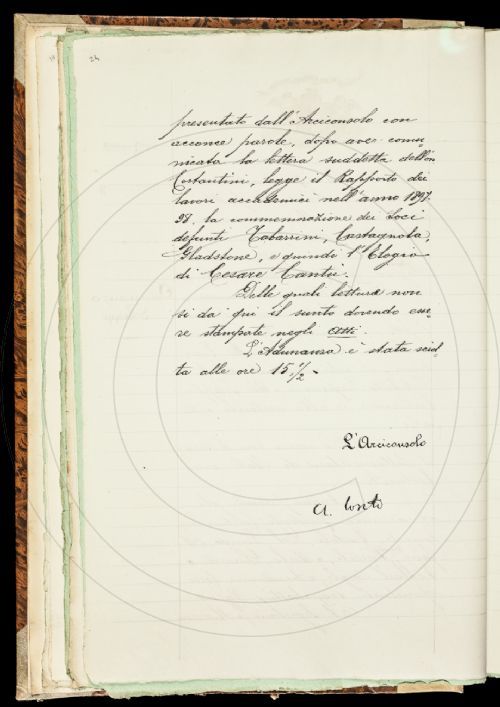 24
presentato dall'Arciconsolo con
acconce parole, dopo aver comu-
nicata la lettera suddetta dell'on
Costantini, legge il Rapporto dei
lavori accademici nell'anno 1897-
98. la commemorazione dei Soci
defunti Tabarrini, Castagnola,
Gladstone, e quindi l'Elogio
di Cesare Cantù.
Delle quali letture non
si dà qui il sunto dovendo esse-
re stampate negli Atti.
L'Adunanza è stata sciol-
ta alle ore 15 1/2 -
L'Arciconsolo
A. Conti